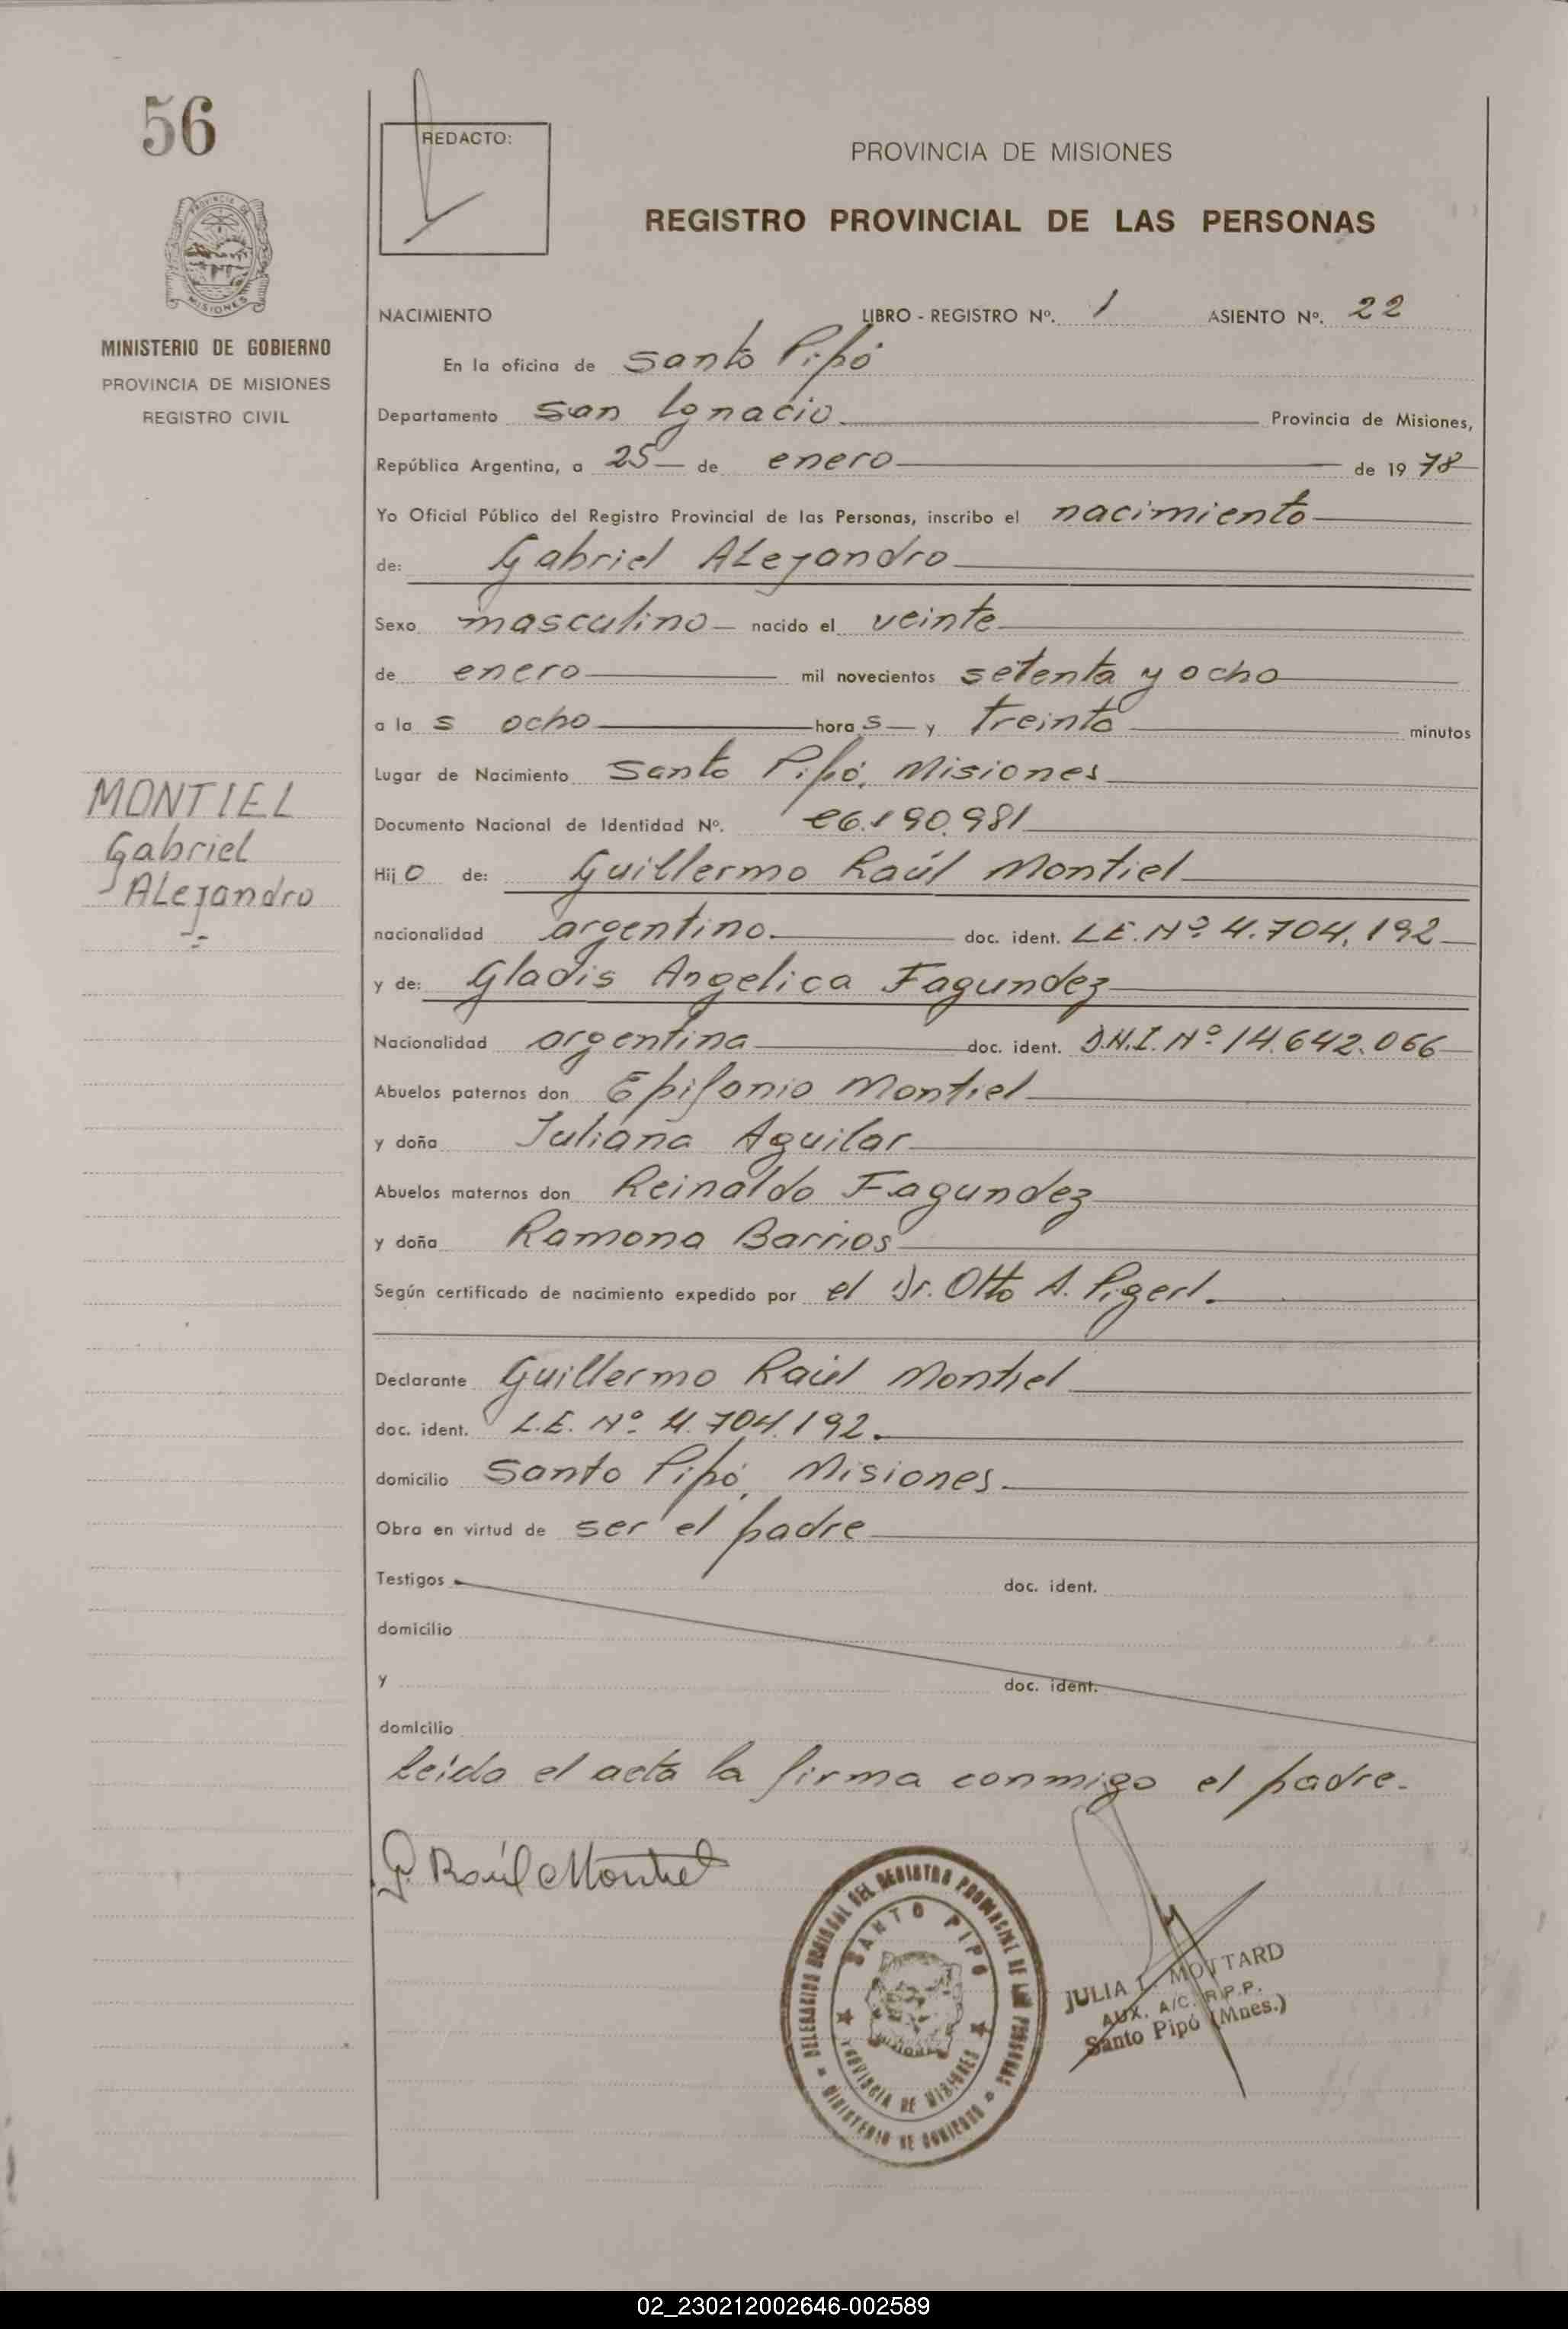 56
REDACTO:
PROVINCIA DE MISIONES
REGISTRO PROVINCIAL DE LAS PERSONAS
MINISTERIO DE GOBIERNO
PROVINCIA DE MISIONES
REGISTRO CIVIL
NACIMIENTO LIBRO - REGISTRO Nº. 1 ASIENTO Nº. 22
En la oficina de Santo Pipó
Departamento San Ignacio Provincia de Misiones,
República Argentina, a 25 de enero de 19 78
Yo Oficial Público del Registro Provincial de las Personas, inscribo el nacimiento
de: Gabriel Alejandro
Sexo masculino nacido el veinte
de enero mil novecientos setenta y ocho
a la s ocho hora s y treinta minutos
Lugar de Nacimiento Santo Pipó, Misiones
MONTIEL
Gabriel
Alejandro
Documento Nacional de Identidad Nº. 26.190.981
Hij o de: Guillermo Raúl Montiel
nacionalidad argentino. doc. ident. L.E. Nº 4.704.192
y de: Gladis Angelica Fagundez
Nacionalidad argentina doc. ident. D.N.I. Nº 14.642.066
Abuelos paternos don Epifanio Montiel
y doña Juliana Aguilar
Abuelos maternos don Reinaldo Fagundez
y doña Ramona Barrios
Según certificado de nacimiento expedido por el Dr. Otto A. Pigerl.
Declarante Guillermo Raúl Montiel
doc. ident. L.E. Nº 4.704.192.
domicilio Santo Pipó, Misiones.
Obra en virtud de ser el padre
Testigos doc. ident.
domicilio
y doc. ident.
domicilio
Leida el acta la firma conmigo el padre.
G. Raúl Montiel
DELEGACION REGIONAL DEL REGISTRO PROVINCIAL DE LAS PERSONAS
MINISTERIO DE GOBIERNO
SANTO PIPÓ
PROVINCIA DE MISIONES
JULIA MOTTARD
AUX. A/C. R.P.P.
Santo Pipó (Mnes.)
02_230212002646-002589